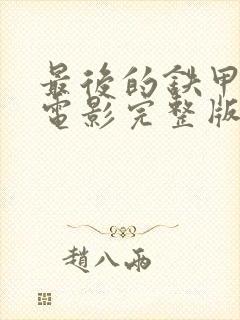 最後的鉄甲
電影完整版
趙八兩